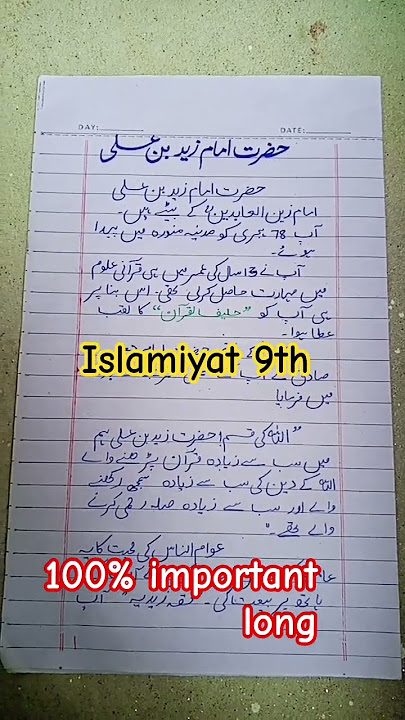 DAY: DATE:
حضرت امام زید بن علی
حضرت امام زید بن علی
امام زین العابدین کے بیٹے ہیں۔
آپ 78 ہجری کو مدینہ منورہ میں پیدا
ہوئے۔
آپ نے 13 سال کی عمر میں ہی قرآنی علوم
میں مہارت حاصل کر لی تھی۔ اس بنا پر
ہی آپ کو "حلیف القرآن" کا لقب
عطا ہوا۔
Islamiyat 9th
صادق نے آپ
میں فرمایا
"اللہ کی قسم! حضرت زید بن علی ہم
میں سب سے زیادہ قرآن پڑھنے والے
اللہ کے دین کی سب سے زیادہ سمجھ رکھنے
والے اور سب سے زیادہ صلہ رحمی کرنے
والے تھے۔"
عوام الناس کی محبت کا یہ
100% important
ہاتھ پر بیعت کی۔ فقہ زیدیہ آپ
long